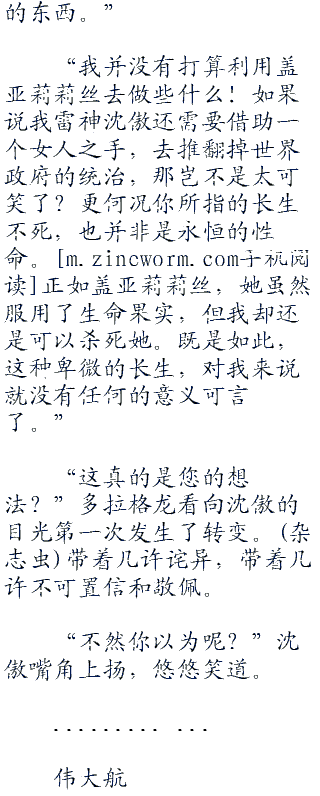 的东西。”
“我并没有打算利用盖
亚莉莉丝去做些什么！如果
说我雷神沈傲还需要借助一
个女人之手，去推翻掉世界
政府的统治，那岂不是太可
笑了？更何况你所指的长生
不死，也并非是永恒的性
命。[m.zineworm.com手机阅
读]正如盖亚莉莉丝，她虽然
服用了生命果实，但我却还
是可以杀死她。既是如此，
这种卑微的长生，对我来说
就没有任何的意义可言
了。”
“这真的是您的想
法？”多拉格龙看向沈傲的
目光第一次发生了转变。(杂
志虫)带着几许诧异，带着几
许不可置信和敬佩。
“不然你以为呢？”沈
傲嘴角上扬，悠悠笑道。
......... ...
伟大航